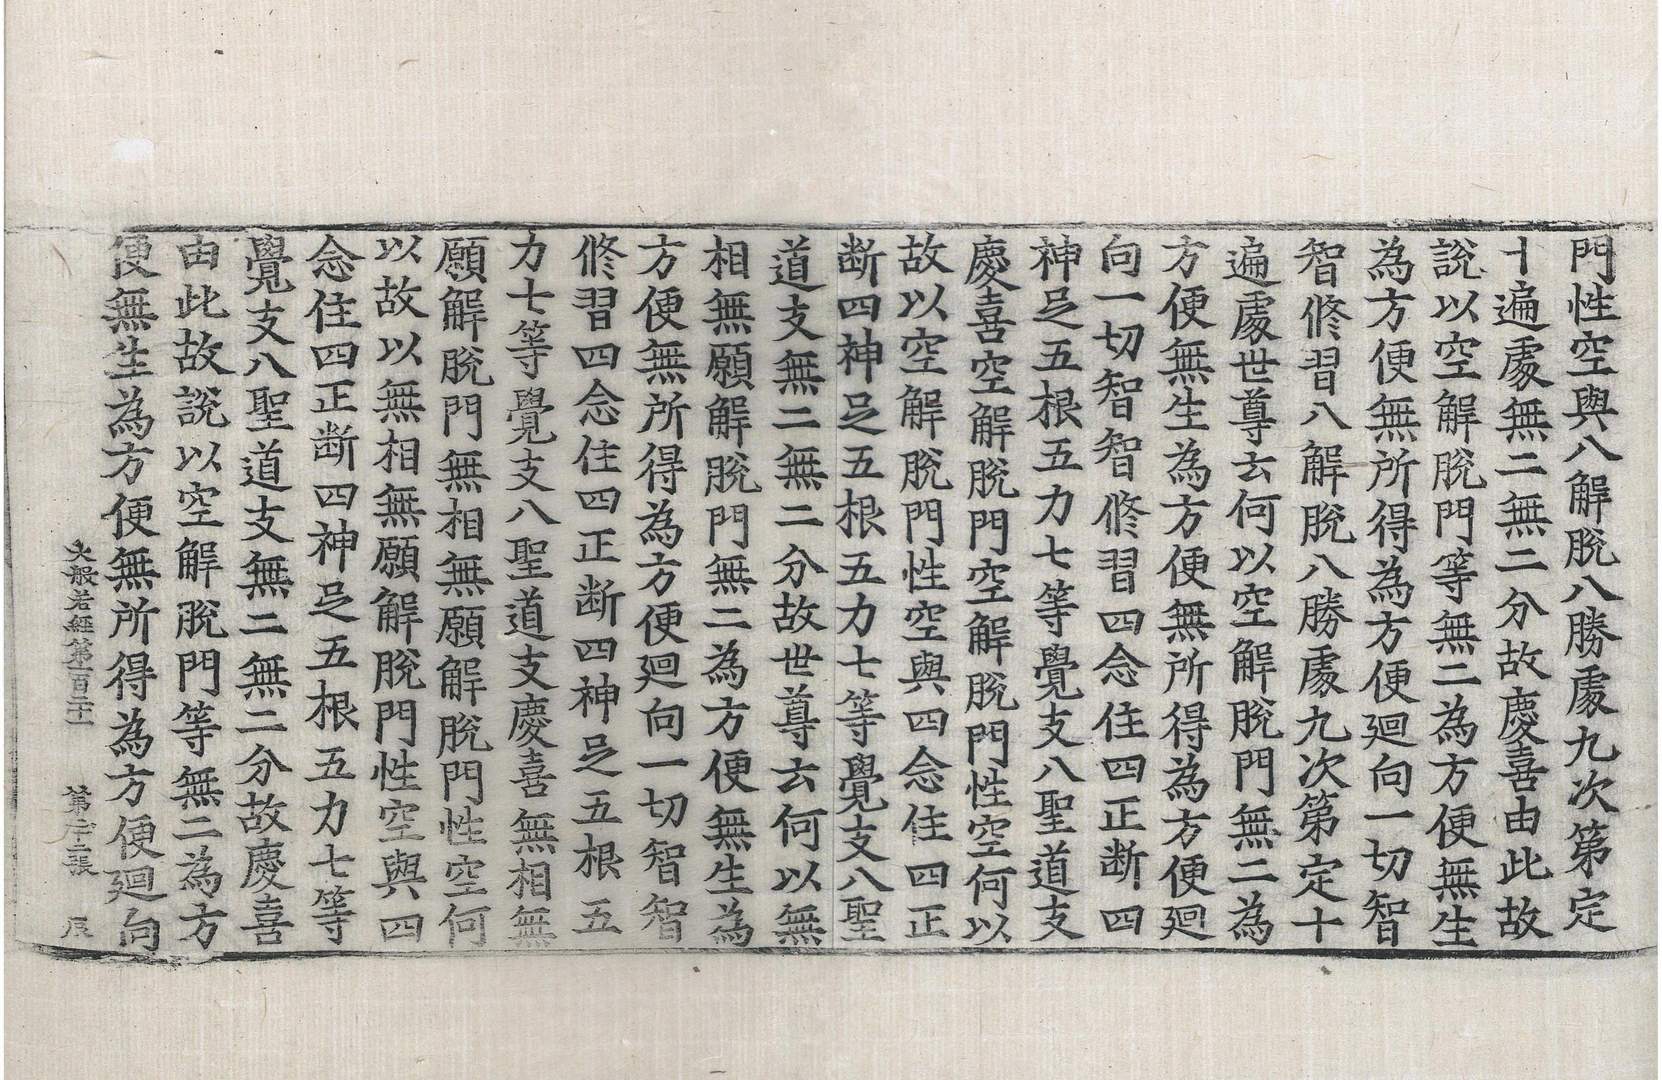 門性空與八解脫八勝處九次第定
十遍處無二無二分故慶喜由此故
說以空解脫門等無二為方便無生
為方便無所得為方便廻向一切智
智修習八解脫八勝處九次第定十
遍處世尊云何以空解脫門無二為
方便無生為方便無所得為方便廻
向一切智智修習四念住四正斷四
神足五根五力七等覺支八聖道支
慶喜空解脫門空解脫門性空何以
故以空解脫門性空與四念住四正
斷四神足五根五力七等覺支八聖
道支無二無二分故世尊云何以無
相無願解脫門無二為方便無生為
方便無所得為方便廻向一切智智
修習四念住四正斷四神足五根五
力七等覺支八聖道支慶喜無相無
願解脫門無相無願解脫門性空何
以故以無相無願解脫門性空與四
念住四正斷四神足五根五力七等
覺支八聖道支無二無二分故慶喜
由此故說以空解脫門等無二為方
便無生為方便無所得為方便廻向
大般若經第一百二十一 第 張 辰